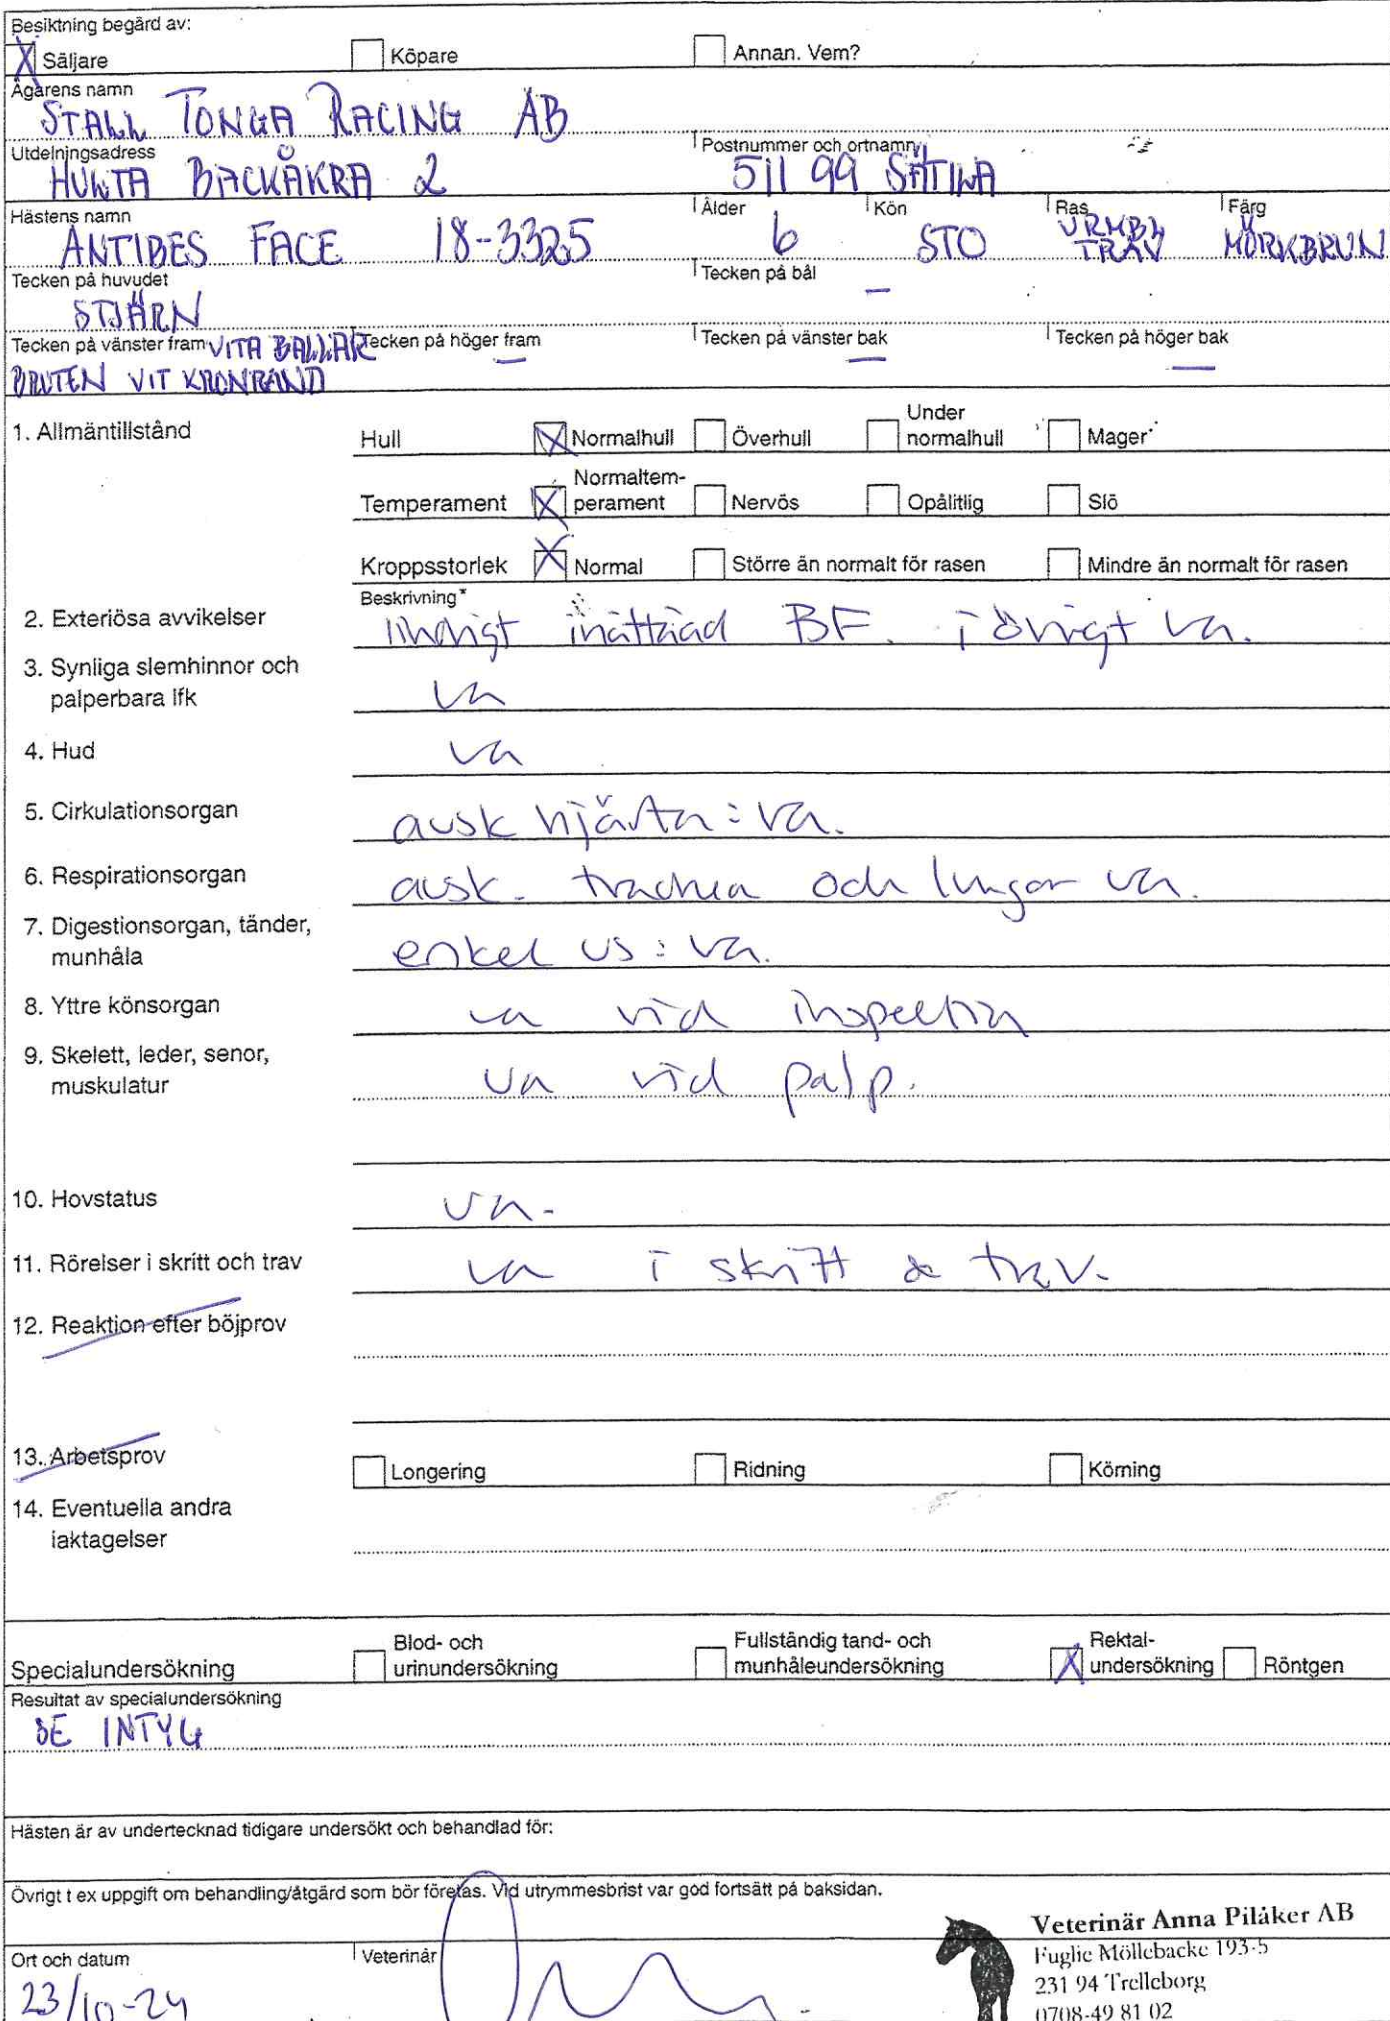 Besiktning begärd av:
X Säljare Köpare Annan. Vem?
Ägarens namn
STALL TONGA RACING AB
Utdelningsadress Postnummer och ortnamn
HULTA BACKÅKRA 2 511 99 SÄTILA
Hästens namn Ålder Kön Ras Färg
ANTIBES FACE 18-3325 6 STO VRMBL TRAV MÖRKBRUN
Tecken på huvudet Tecken på bål
STJÄRN —
Tecken på vänster fram VITA BALLAR Tecken på höger fram — Tecken på vänster bak — Tecken på höger bak —
BRUTEN VIT KRONRAND
1. Allmäntillstånd Hull X Normalhull Överhull Under normalhull Mager
Temperament X Normaltem-perament Nervös Opålitlig Slö
Kroppsstorlek X Normal Större än normalt för rasen Mindre än normalt för rasen
Beskrivning*
2. Exteriösa avvikelser lindrigt inåttåad BF. i övrigt va.
3. Synliga slemhinnor och
palperbara lfk va
4. Hud va
5. Cirkulationsorgan ausk hjärta: va.
6. Respirationsorgan ausk. trachea och lungor va.
7. Digestionsorgan, tänder,
munhåla enkel us: va.
8. Yttre könsorgan va vid inspektion
9. Skelett, leder, senor,
muskulatur va vid palp.
10. Hovstatus va.
11. Rörelser i skritt och trav va i skritt & trav.
12. Reaktion efter böjprov
13. Arbetsprov Longering Ridning Körning
14. Eventuella andra
iaktagelser
Specialundersökning Blod- och urinundersökning Fullständig tand- och munhåleundersökning X Rektal-undersökning Röntgen
Resultat av specialundersökning
SE INTYG
Hästen är av undertecknad tidigare undersökt och behandlad för:
Övrigt t ex uppgift om behandling/åtgärd som bör företas. Vid utrymmesbrist var god fortsätt på baksidan.
Veterinär Anna Pilåker AB
Ort och datum Veterinär Fuglie Möllebacke 193-5
231 94 Trelleborg
23/10-24 0708-49 81 02